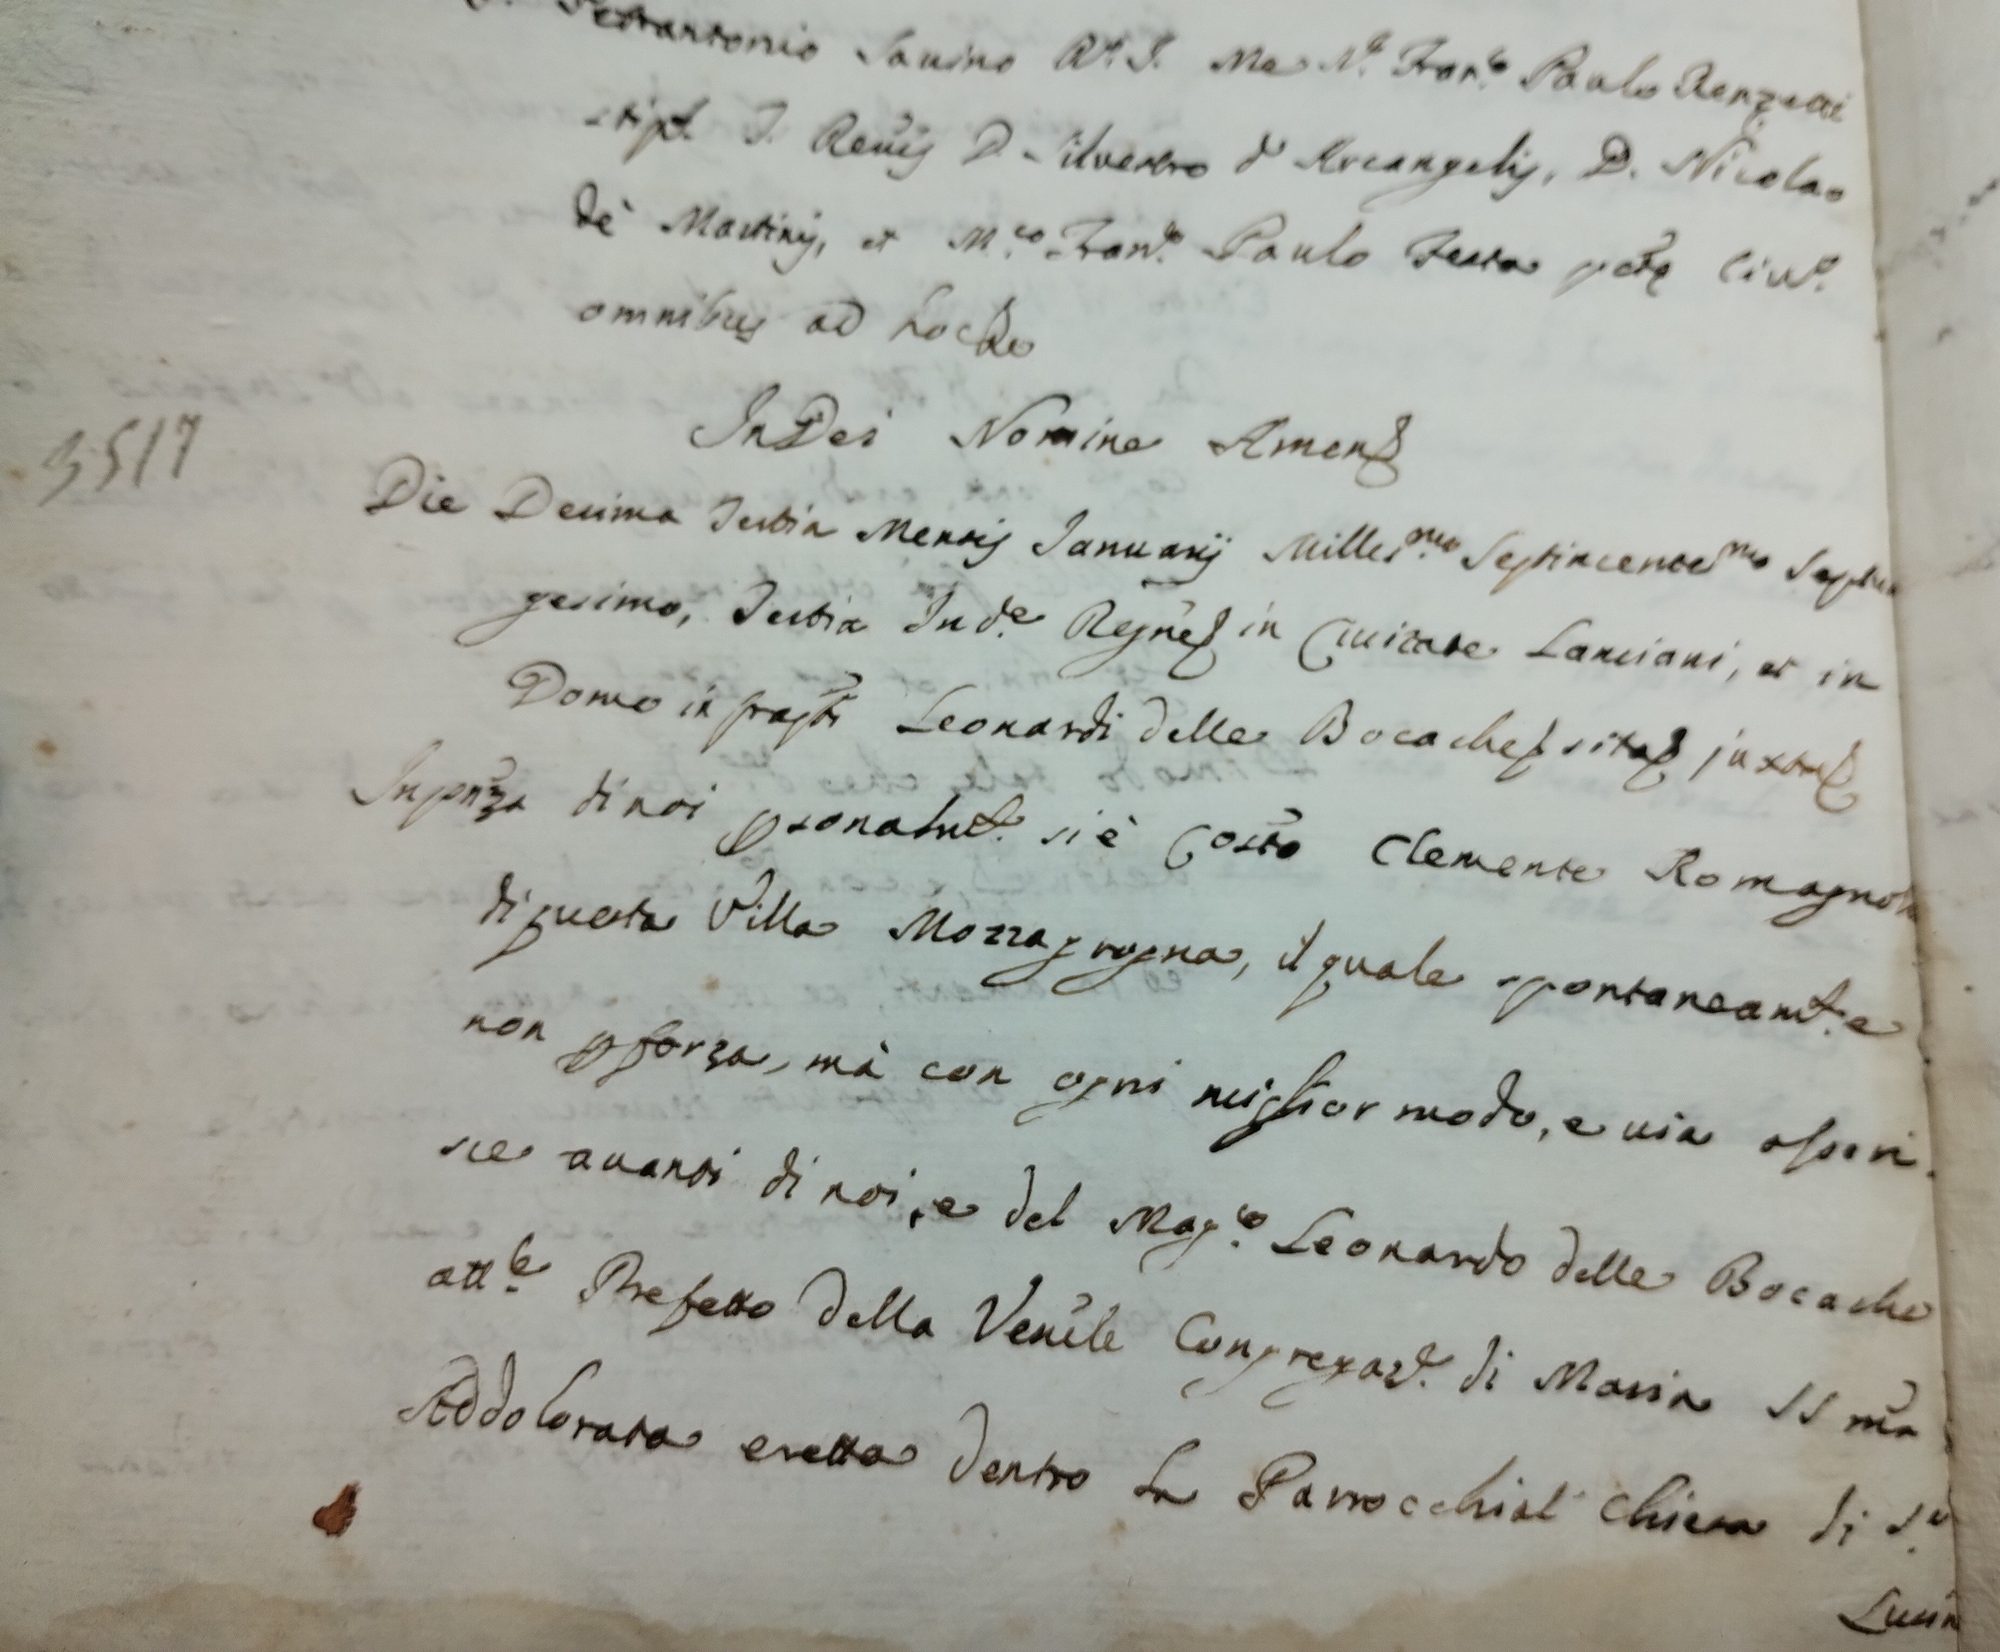 Petrantonio Sauino R.º I. Me N.º Fran.co Paulo Renzetti
stip.t I. Reuis D. Siluestro d' Arcangelis, D. Nicolao
de Martinis, et M.co Fran.co Paulo Testa
omnibus ad hoc
In Dei Nomine Amen
3517
Die Decima Tertia Mensis Januarij Milles.mo Septincentes.mo Septua
gesimo, Tertia Ind.e Regnes in Ciuitate Lanciani, et in
Domo infrapti Leonardi delle Bocache sita juxta
In pnza di noi psonalmt. si è Costo Clemente Romagnoli
di questa Villa Mozzagrogna, il quale spontaneamt. e
non p forza, mà con ogni miglior modo, e uia asseri
sce auanti di noi, e del Mag.co Leonardo delle Bocache
att.le Prefetto della Venele Congregaz.e di Maria SSma
Addolorata eretta dentro la Parrocchial Chiesa di S.